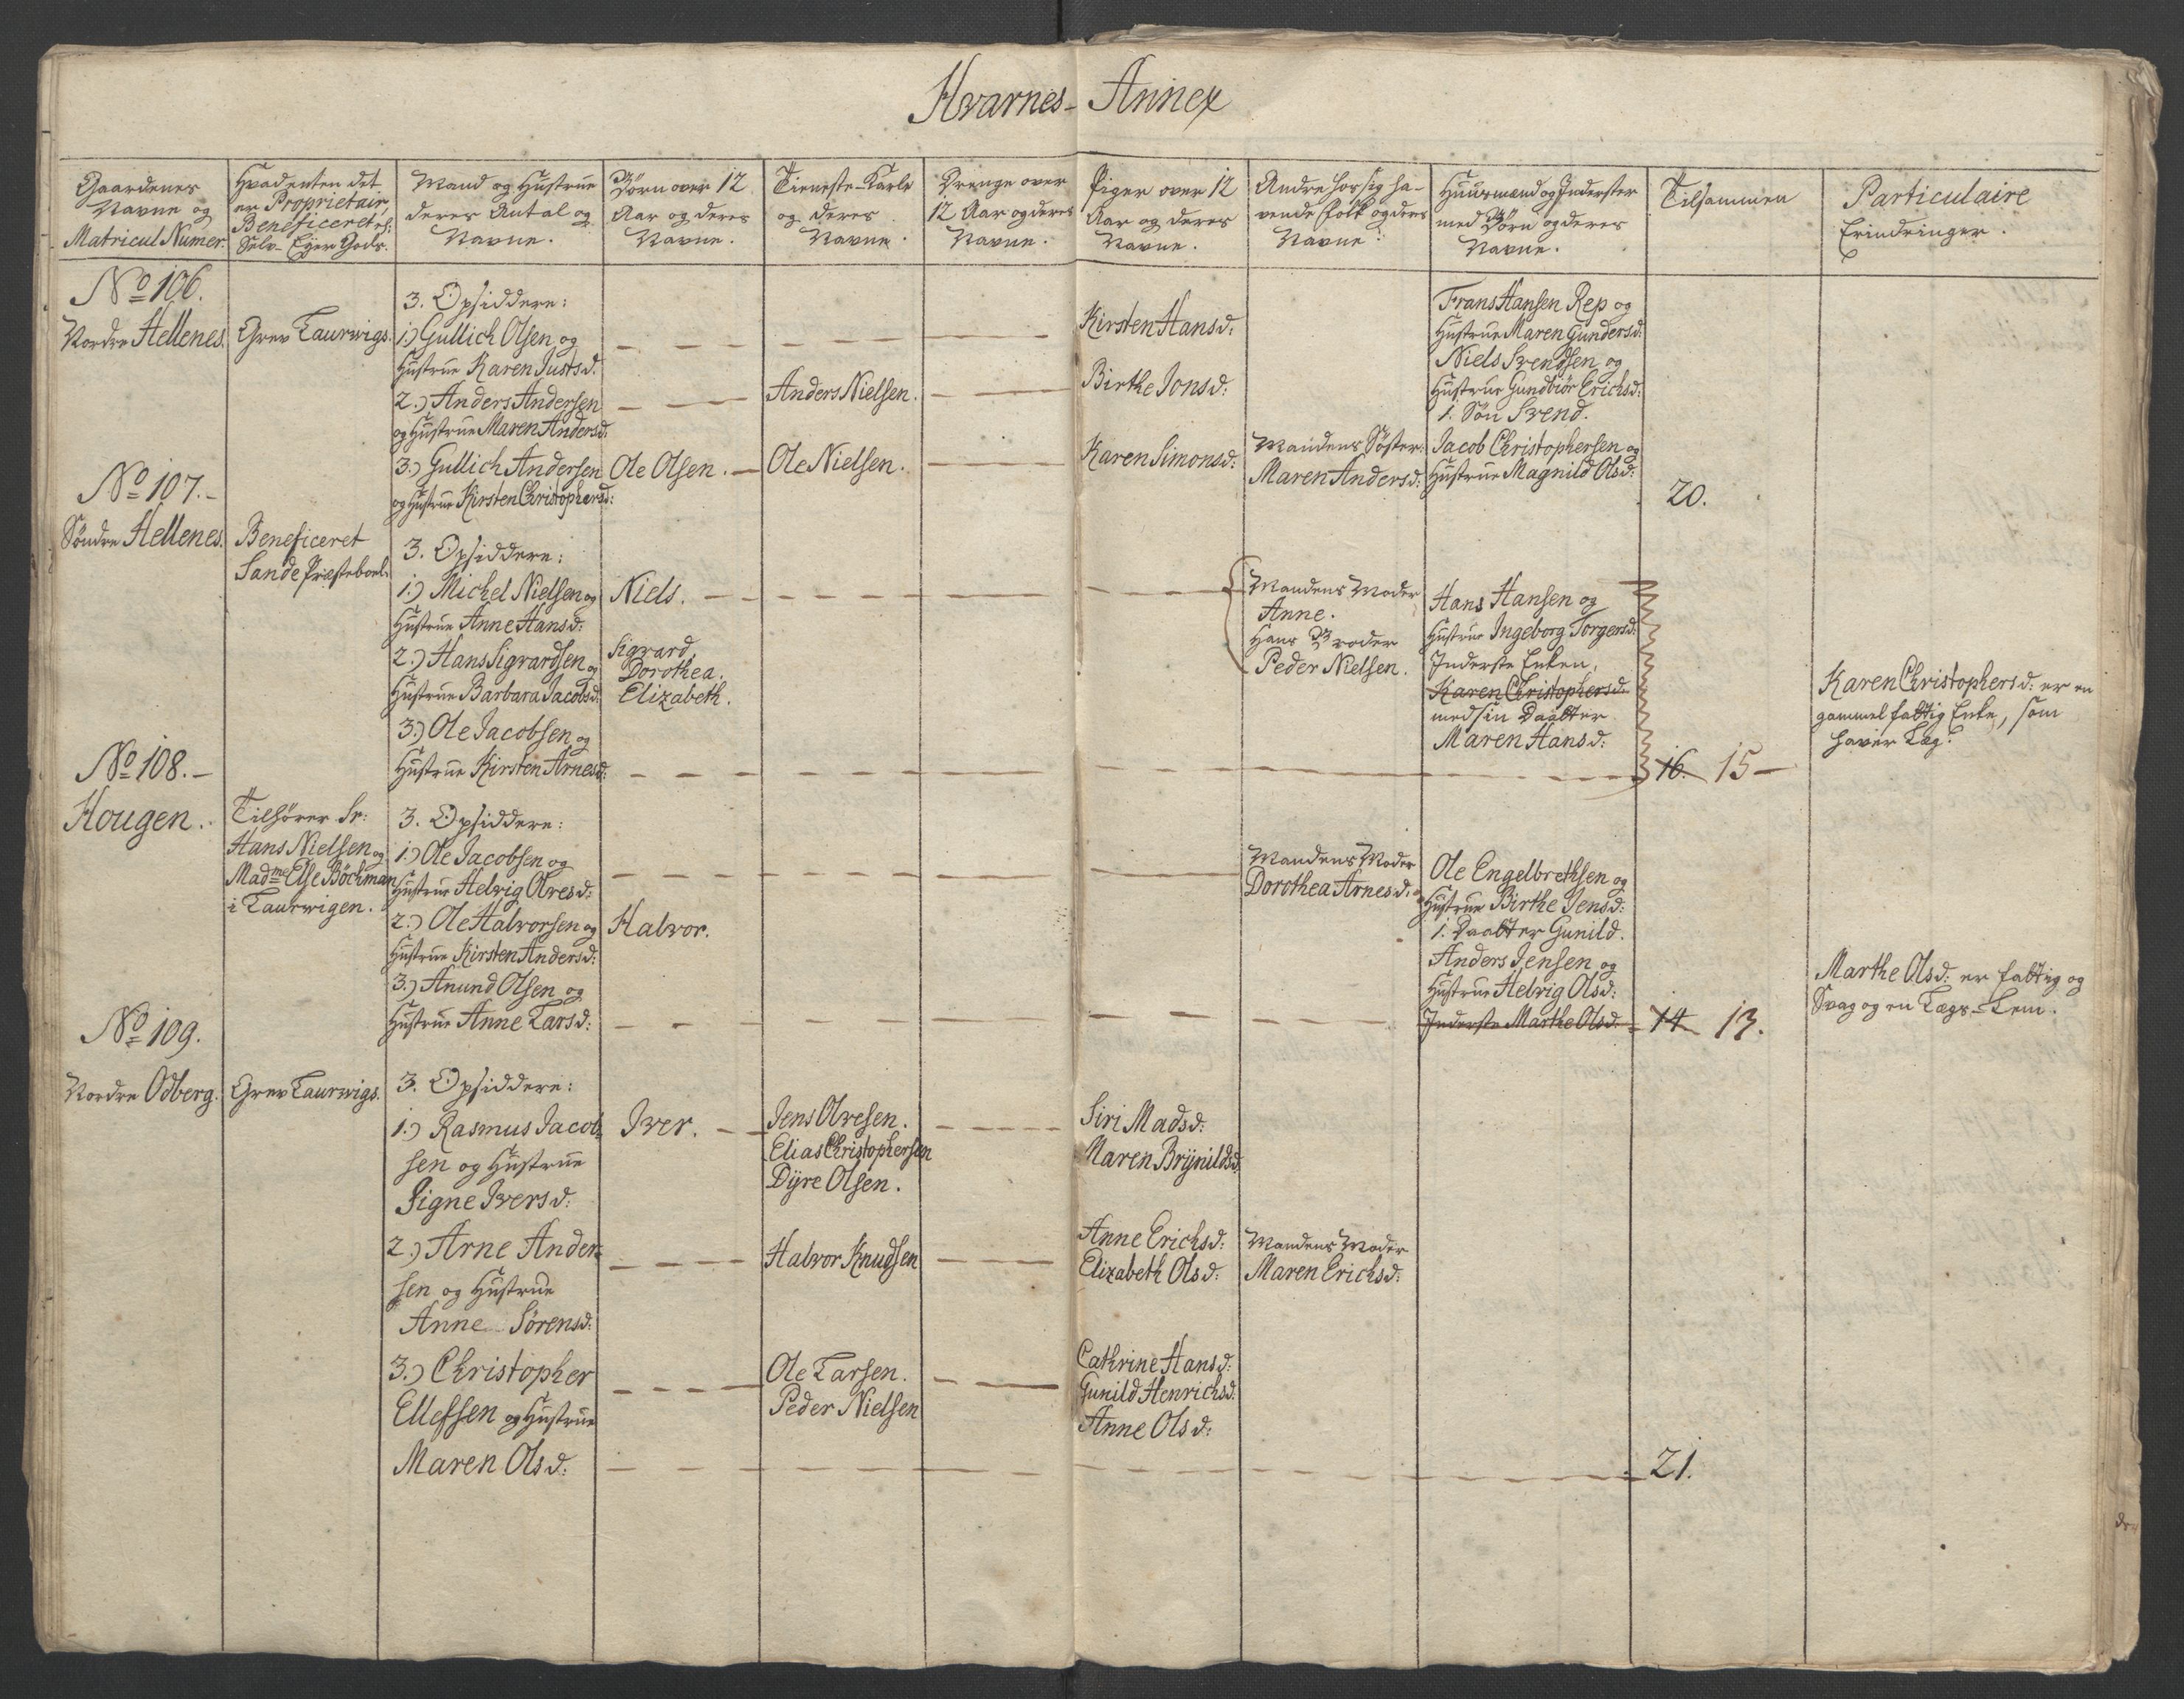 Hvarnes-Annex
Gaardenes
Navne og
Matricul Numer.
Hvad enten det
er Proprietair,
Beneficeret el:
Selv-Ejer Gods.
Mand og Hustrue
deres Antal og
Navne.
Børn over 12
Aar og deres
Navne.
Tieneste-Karle
og deres
Navne.
Drenge over
12 Aar og deres
Navne.
Piger over 12
Aar og deres
Navne.
Andre hos sig ha-
vende Folk og deres
Navne.
Huusmænd og Inderster
med Børn og deres
Navne.
Tilsammen
Particulaire
Erindringer.
No 106.
Nordre Hellenes.
Grev Laurwigs.
3. Opsiddere:
1.) Gullich Olsen og
Hustrue Karen Justsd.
2.) Anders Andersen
og Hustrue Maren Andersd:
3.) Gullich Andersen
og Hustrue Kirsten Christophersd:
Ole Olsen.
Anders Nielsen.
Ole Nielsen.
Kirsten Hansd:
Birthe Jonsd:
Karen Simonsd:
Mandens Søster:
Maren Andersd:
Frans Hansen Rep og
Hustrue Maren Gundersd:
Niels Svendsen og
Hustrue Gundbiør Erichsd:
1. Søn Svend.
Jacob Christophersen og
Hustrue Magnild Olsd:
20.
No 107.-
Søndre Hellenes.
Beneficeret
Sande Præsteboel.
3. Opsiddere:
1.) Michel Nielsen og
Hustrue Anne Hansd:
2.) Hans Sigvardsen og
Hustrue Barbara Jacobsd:
3.) Ole Jacobsen og
Hustrue Kirsten Arnesd:
Niels.
Sigvard,
Dorothea.
Elizabeth.
Mandens Moder
Anne.
Hans Broder
Peder Nielsen.
Hans Hansen og
Hustrue Ingeborg Torgersd:
Inderste Enken,
Karen Christophersd:
med sin Daatter
Maren Hansd:
16. 15-
Karen Christophersd: er en
gammel fattig Enke, som
haver Læg.
No 108.-
Hougen.
Tilhører Sr:
Hans Nielsen og
Madme Else Böckman
i Laurwigen.
3. Opsiddere:
1.) Ole Jacobsen og
Hustrue Helvig Olvesd:
2.) Ole Halvorsen og
Hustrue Kirsten Andersd:
3.) Anund Olsen og
Hustrue Anne Larsd:
Halvor.
Mandens Moder
Dorothea Arnesd:
Ole Engelbrethsen og
Hustrue Birthe Jensd:
1. Daatter Gunild.
Anders Jensen og
Hustrue Helvig Olsd:
Inderste Marthe Olsd:
14 13.
Marthe Olsd: er fattig og
Svag og en Lægs-Lem.
No 109.
Nordre Odberg.
Grev Laurwigs.
3. Opsiddere:
1.) Rasmus Jacob-
sen og Hustrue
Signe Iversd:
2.) Arne Ander-
sen og Hustrue
Anne Sørensd:
3.) Christopher
Ellefsen og Hustrue
Maren Olsd:
Iver.
Jens Olvesen.
Elias Christophersen
Dÿre Olsen.
Halvor Knudsen
Ole Larsen.
Peder Nielsen
Siri Madsd:
Maren Brÿnildsd:
Anne Erichsd:
Elizabeth Olsd:
Cathrine Hansd:
Gunild Henrichsd:
Anne Olsd:
Mandens Moder
Maren Erichsd:
21.